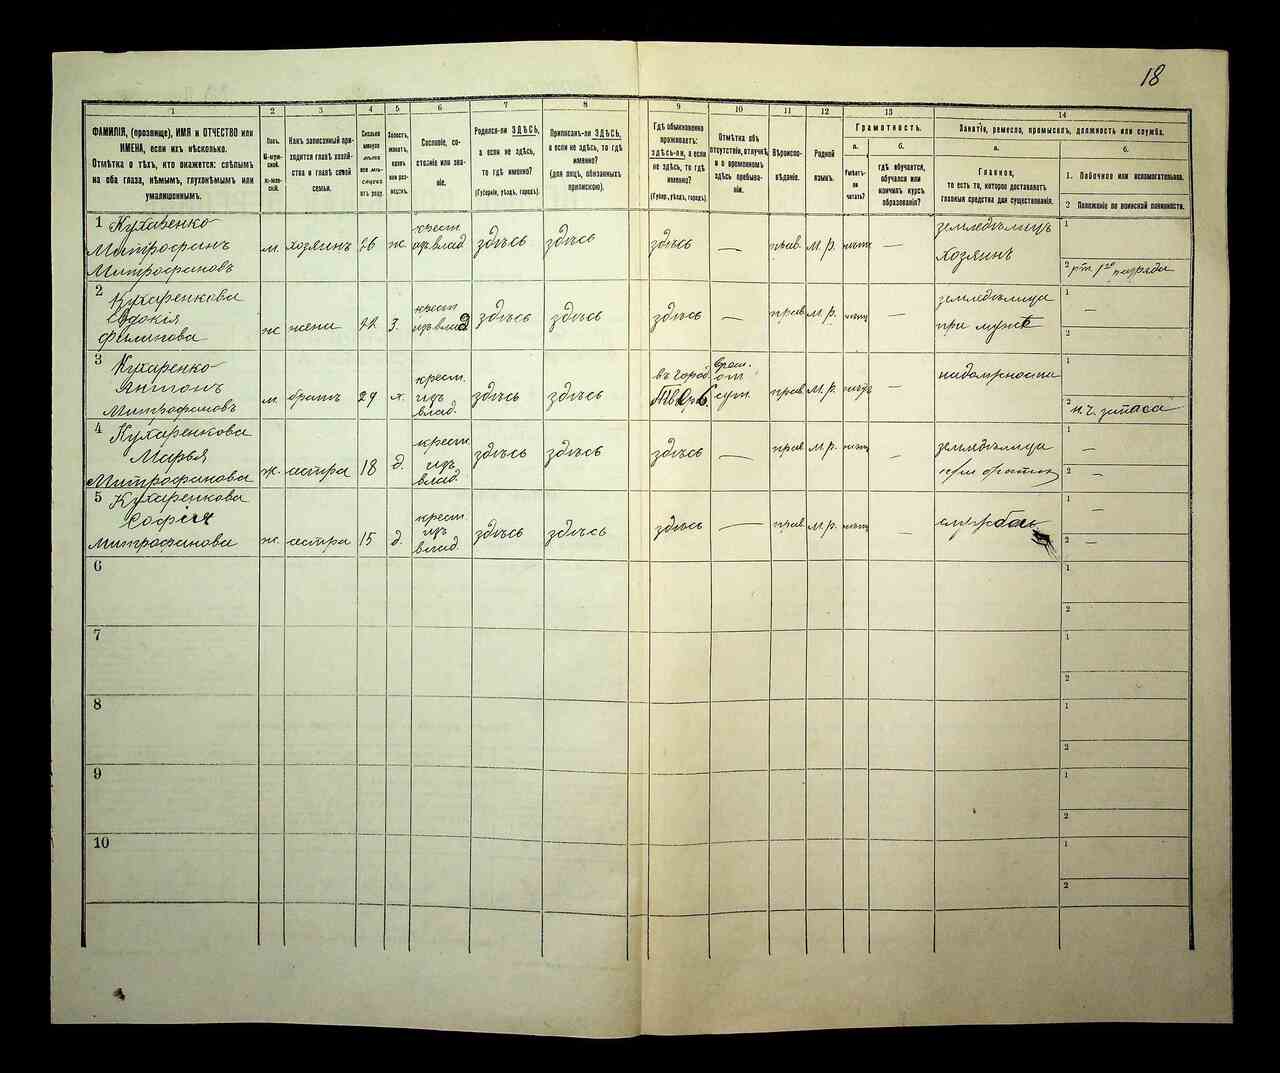 18
1
2
3
4
5.
6
7
8
9
10
11
12
13
14
ФАМИЛІЯ, (прозвище), ИМЯ и ОТЧЕСТВО или
ИМЕНА, если ихъ нѣсколько.
Отмѣтка о тѣхъ, кто окажется: слѣпымъ
на оба глаза, нѣмымъ, глухонѣмымъ или
умалишеннымъ.
Полъ.
М-муж-
ской.
Ж-жен-
скій.
Какъ записанный при-
ходится главѣ хозяй-
ства и главѣ своей
семьи.
Сколько
минуло
лѣтъ
или мѣ-
сяцевъ
отъ роду.
Холостъ,
женатъ,
вдовъ
или раз-
веденъ.
Сословіе, со-
стояніе или зва-
ніе.
Родился-ли ЗДѢСЬ,
а если не здѣсь,
то гдѣ именно?
(Губернія, уѣздъ, городъ).
Приписанъ-ли ЗДѢСЬ,
а если не здѣсь, то гдѣ
именно?
(для лицъ, обязанныхъ
припискою).
Гдѣ обыкновенно
проживаетъ:
здѣсь-ли, а если
не здѣсь, то гдѣ
именно?
(Губер., уѣздъ, городъ).
Отмѣтка объ
отсутствіи, отлучкѣ
и о временномъ
здѣсь пребыва-
ніи.
Вѣроиспо-
вѣданіе.
Родной
языкъ.
Грамотность.
а.
Умѣетъ-
ли
читать?
б.
гдѣ обучается,
обучался или
кончилъ курсъ
образованія?
Занятіе, ремесло, промыселъ, должность или служба.
а.
Главное,
то есть то, которое доставляетъ
главныя средства для существованія.
б.
1. Побочное или вспомогательное.
2 Положеніе по воинской повинности.
1 Кухаренко
Митрофанъ
Митрофановъ
м. хозяинъ 26 ж. крест. изъ влад. здѣсь здѣсь здѣсь — прав. м. р. — земледѣлецъ хозяинъ
1
2
2 Кухаренкова
Евдокія
Филипова
ж жена 22 з. крест изъ влад здѣсь здѣсь здѣсь — прав м. р. — земледѣлица при мужѣ
1 —
2
3 Кухаренко
Антонъ
Митрофановъ
м. братъ 24 х. крест. изъ влад. здѣсь здѣсь въ город. прав м. р. —
1
2 н. ч. запаса
4 Кухаренкова
Марья
Митрофанова
ж. сестра 18 д. крест изъ влад. здѣсь здѣсь здѣсь — прав м. р. — земледѣлица при братѣ
1 —
2 —
5 Кухаренкова
Софія
Митрофанова
ж. сестра 15 д. крест. изъ влад. здѣсь здѣсь здѣсь — прав. м. р. —
1 —
2 —
6
1
2
7
1
2
8
1
2
9
1
2
10
1
2